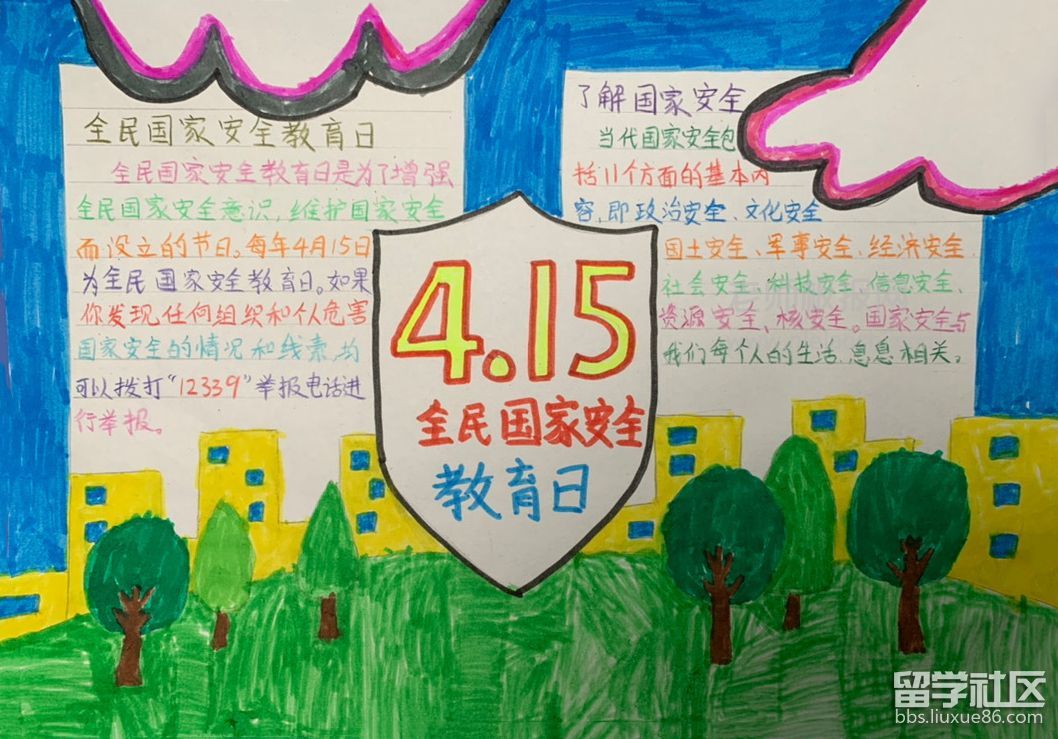 全民国家安全教育日
全民国家安全教育日是为了增强
全民国家安全意识，维护国家安全
而设立的节日。每年4月15日
为全民国家安全教育日。如果
你发现任何组织和个人危害
国家安全的情况和线索，均
可以拨打“12339”举报电话进
行举报。
4.15
全民国家安全
教育日
了解国家安全
当代国家安全包
括11个方面的基本内
容，即政治安全、文化安全
国土安全、军事安全、经济安全、
社会安全、科技安全、信息安全、
资源安全、核安全。国家安全与
我们每个人的生活息息相关。
留学社区
bbs.liuxue86.com